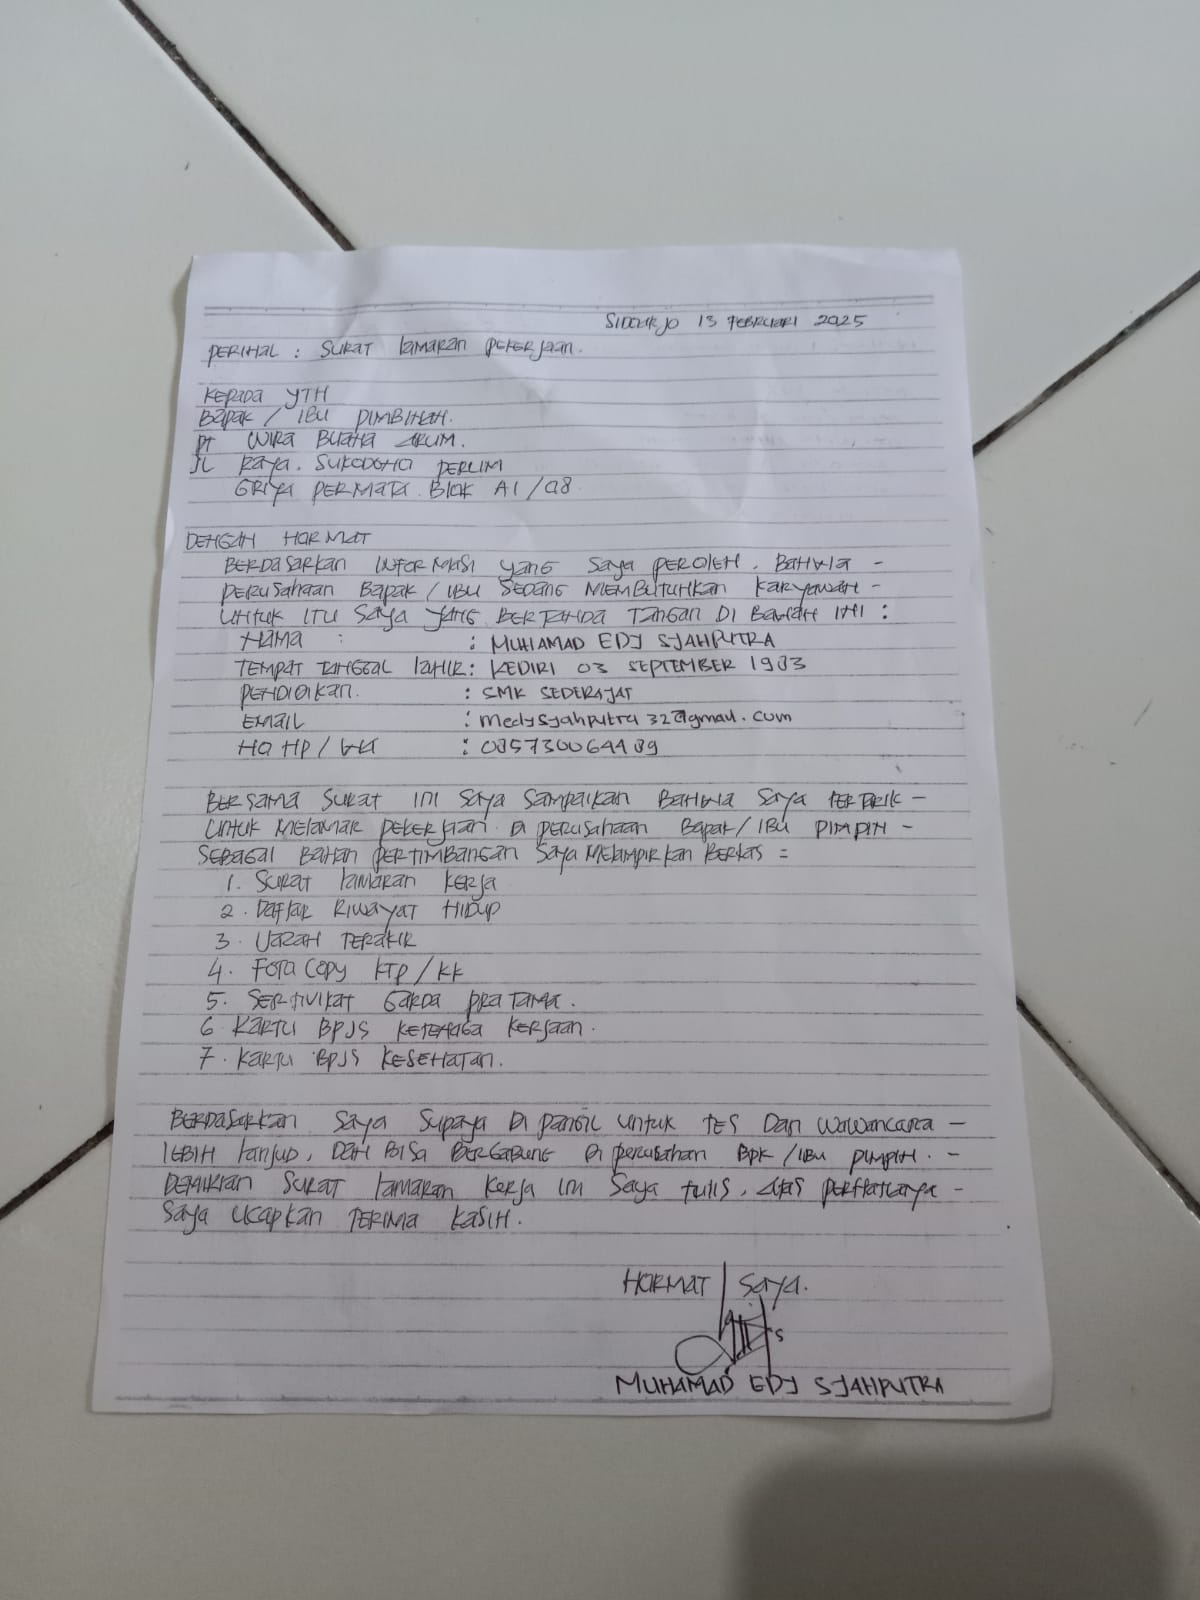 SIDOARJO 13 FEBRUARI 2025
PERIHAL : SURAT lAMARAN PEKERJAAN.
KEPADA YTH
BAPAK / IBU PIMBINAN.
PT WIRA BUANA ARUM.
JL RAYA. SUKODONO PERUM
GRIYA PERMATA BLOK A1 / 08
DENGAN HORMAT
BERDASARKAN INFORMASI YANG SAYA PEROLEH. BAHWA -
PERUSAHAAN BAPAK / IBU SEDANG MEMBUTUHKAN KARYAWAN -
UNTUK ITU SAYA YANG BERTANDA TANGAN DI BAWAH INI :
NAMA : : MUHAMAD EDJ SJAHPUTRA
TEMPAT TANGGAL lAHIR : KEDIRI 03 SEPTEMBER 1983
PENDIDIKAN. : SMK SEDERAJAT
EMAIL : medjsjahputra32@gmail.com
NO HP / WA : 085730064489
BERSAMA SURAT INI SAYA SAMPAIKAN BAHWA SAYA TERTARIK -
UNTUK MELAMAR PEKERJAAN DI PERUSAHAAN BAPAK / IBU PIMPIN -
SEBAGAI BAHAN PERTIMBANGAN SAYA MELAMPIRKAN BERKAS =
1. SURAT lAMARAN KERJA
2. DAFTAR RIWAYAT HIDUP
3. IJAZAH TERAKIR
4. FOTO COPY KTP / KK
5. SERTIVIKAT GARDA PRATAMA.
6 KARTU BPJS KETENAGA KERJAAN.
7. KARTU BPJS KESEHATAN.
BERDASARKAN SAYA SUPAYA DI PANGIL UNTUK TES DAN WAWANCARA -
lEBIH lANJUD, DAN BISA BERGABUNG DI PERUSAHAN BPK / IBU PIMPIN. -
DEMIKIAN SURAT lAMARAN KERJA INI SAYA TULIS, ATAS PERHATIANYA -
SAYA UCAPKAN TERIMA KASIH.
HORMAT SAYA.
MUHAMAD EDJ SJAHPUTRA